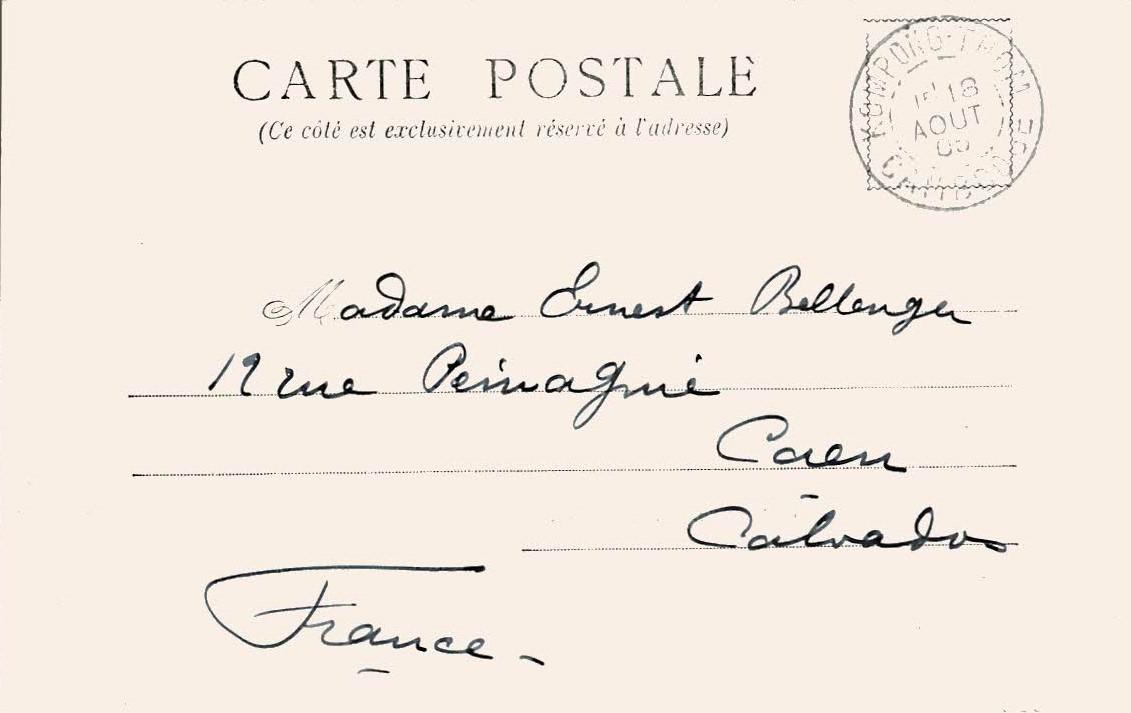 CARTE POSTALE
(Ce côté est exclusivement réservé à l'adresse)
KOMPONG-THOM
18
AOUT
CAMBODGE
Madame Ernest Bellenger
12 rue Pémagnie
Caen
Calvados
France -